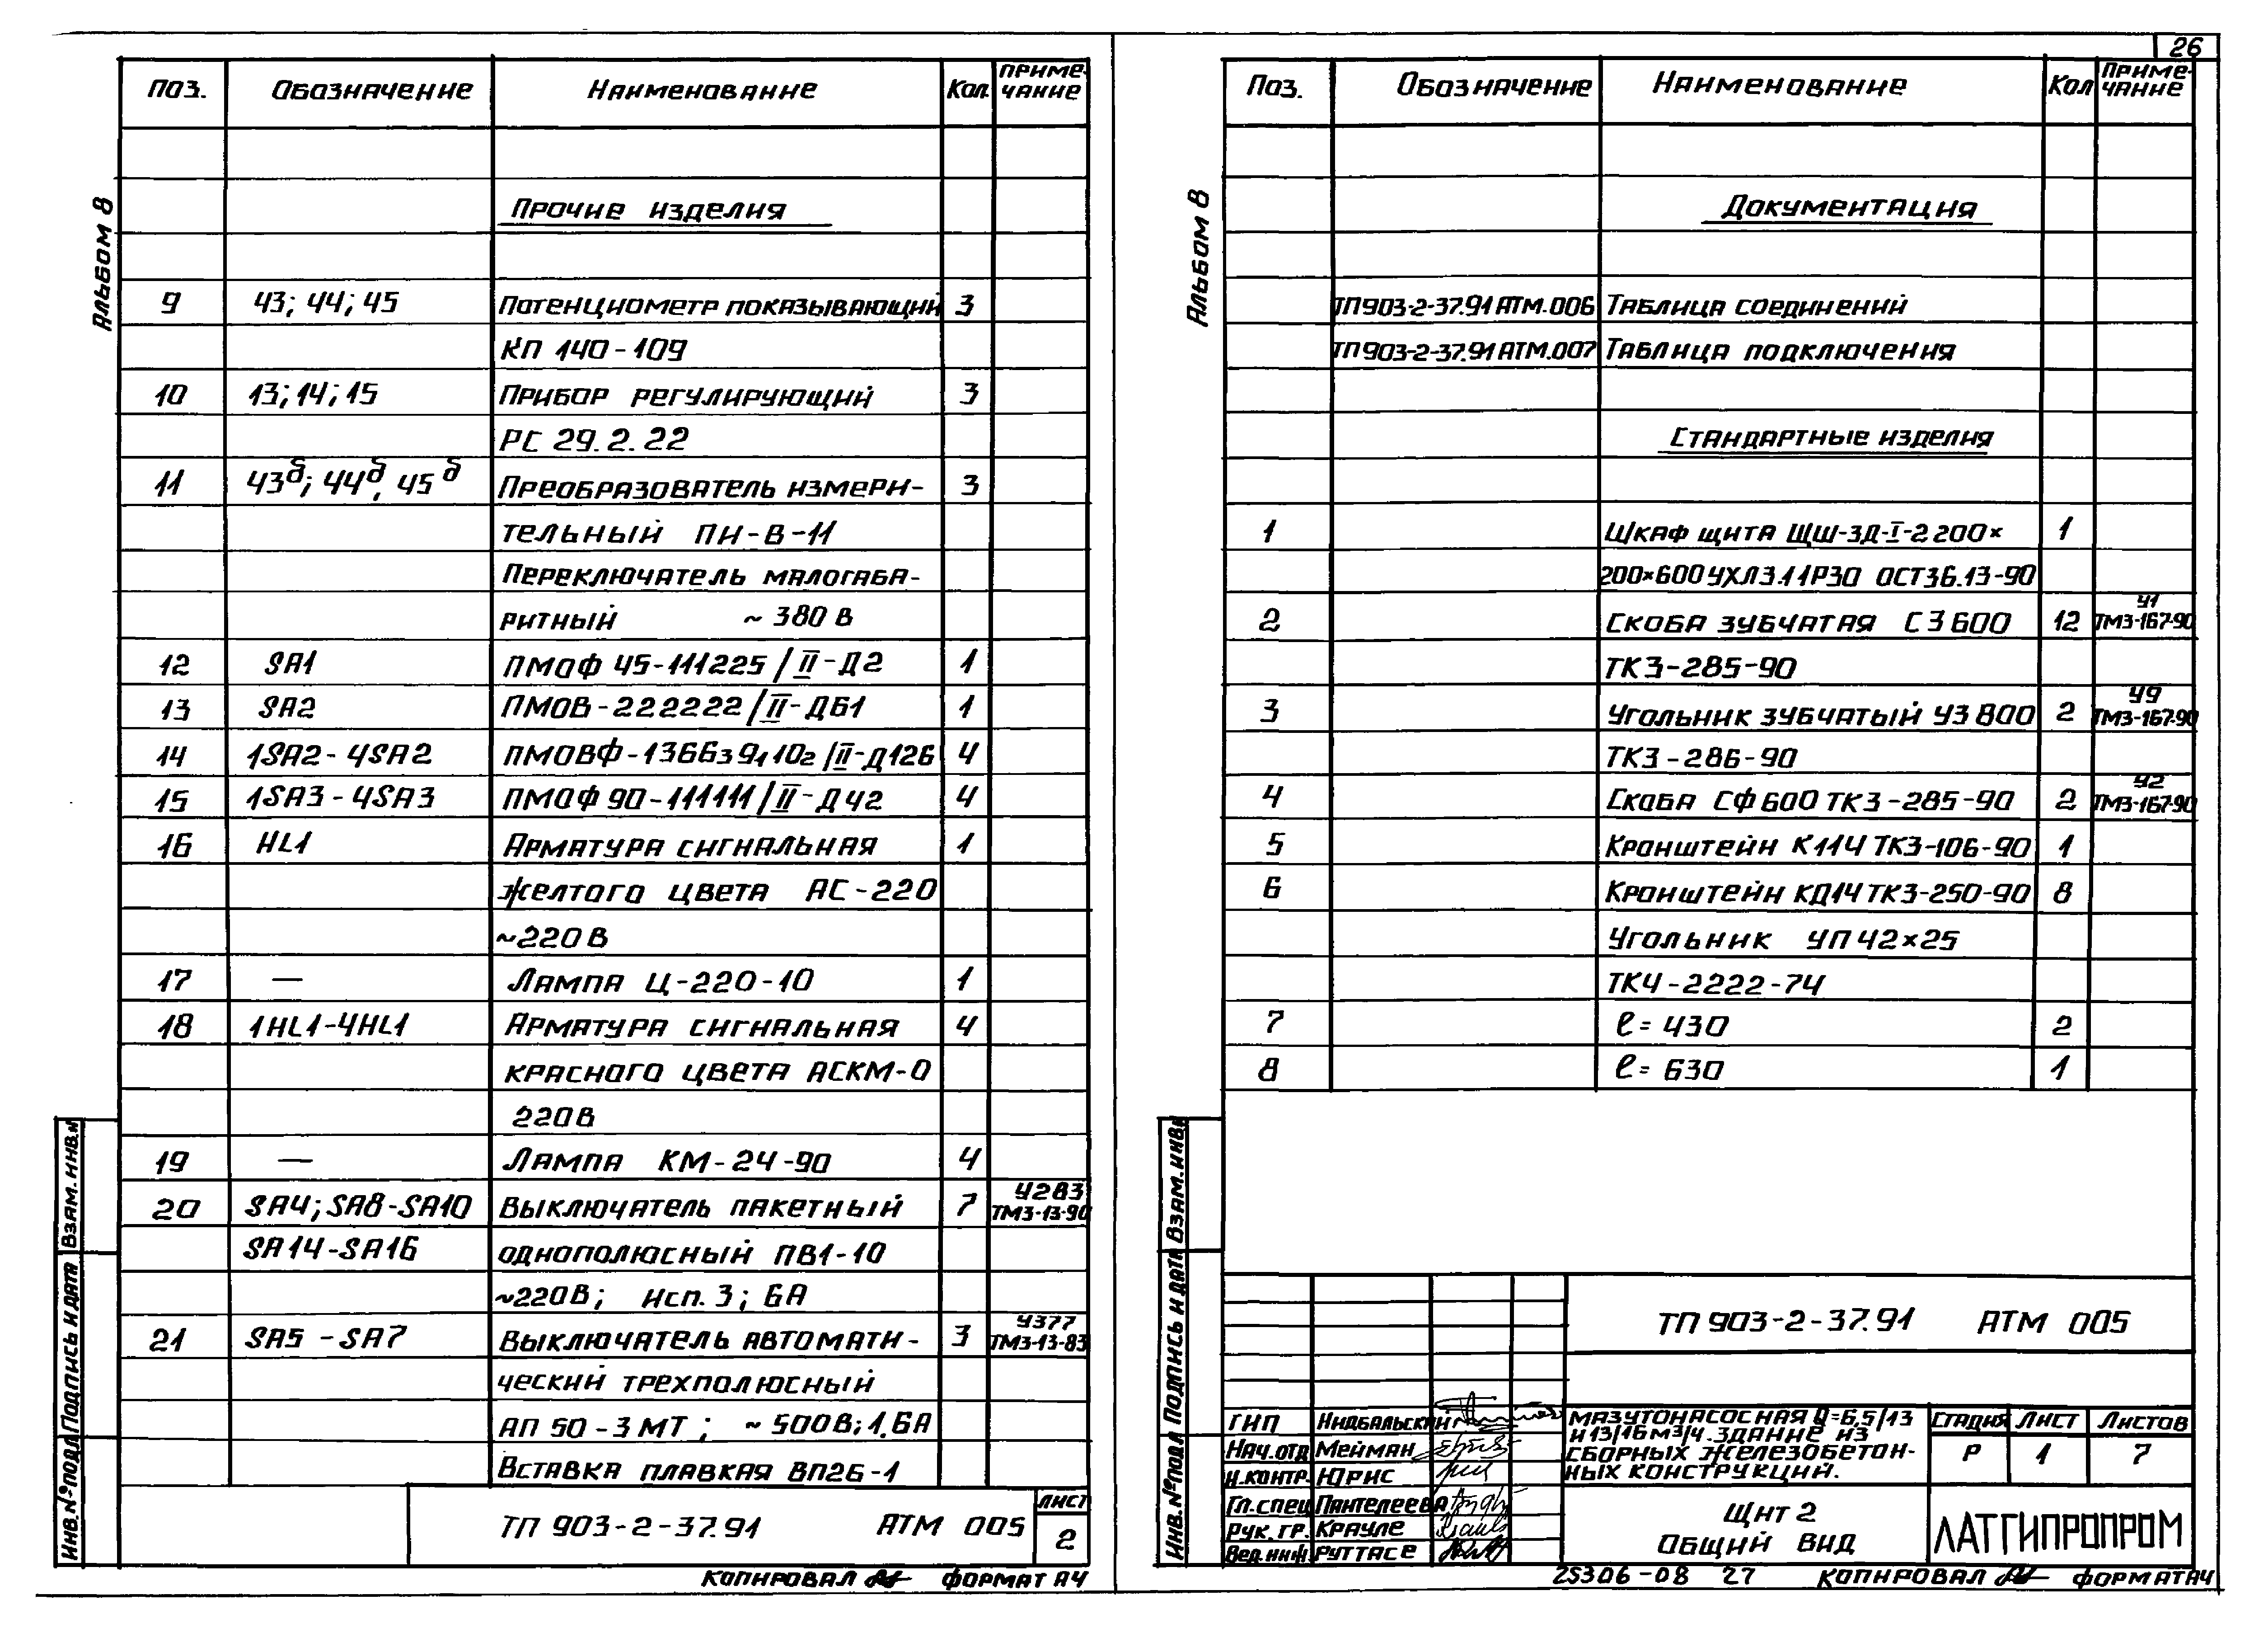 26
Альбом 8
Поз. Обозначение Наименование Кол. Примечание
Прочие изделия
9 43; 44; 45 Потенциометр показывающий 3
КП 140-109
10 13; 14; 15 Прибор регулирующий 3
РС 29.2.22
11 43б; 44б, 45б Преобразователь измери- 3
тельный ПИ-В-11
Переключатель малогаба-
ритный ~ 380 В
12 SA1 ПМОФ 45-111225/II-Д2 1
13 SA2 ПМОВ-222222/II-ДБ1 1
14 1SA2-4SA2 ПМОВФ-1366з9д10г/II-Д126 4
15 1SA3-4SA3 ПМОФ 90-111111/II-Д42 4
16 HL1 Арматура сигнальная 1
желтого цвета АС-220
~220 В
17 — Лампа Ц-220-10 1
18 1HL1-4HL1 Арматура сигнальная 4
красного цвета АСКМ-0
220 В
19 — Лампа КМ-24-90 4
20 SA4; SA8-SA10 Выключатель пакетный 7 У283 ТМ3-13-90
SA14-SA16 однополюсный ПВ1-10
~220В; исп. 3; 6А
21 SA5 - SA7 Выключатель автомати- 3 У377 ТМ3-13-83
ческий трехполюсный
АП 50-3 МТ; ~ 500В; 1,6А
Вставка плавкая ВП2Б-1
ТП 903-2-37.91 АТМ 005
Лист
2
Инв.№подл Подпись и дата Взам.инв.н
Копировал Формат А4
Альбом 8
Поз. Обозначение Наименование Кол Примечание
Документация
ТП903-2-37.91 АТМ.006 Таблица соединений
ТП903-2-37.91 АТМ.007 Таблица подключения
Стандартные изделия
1 Шкаф щита ЩШ-3Д-I-2200× 1
200×600 УХЛ3.1 1Р30 ОСТ36.13-90
2 Скоба зубчатая СЗ 600 12 У1 ТМ3-167-90
ТК3-285-90
3 Угольник зубчатый УЗ 800 2 У9 ТМ3-167-90
ТК3-286-90
4 Скоба СФ 600 ТК3-285-90 2 У2 ТМ3-167-90
5 Кронштейн К114 ТК3-106-90 1
6 Кронштейн КД14 ТК3-250-90 8
Угольник УП 42×25
ТК4-2222-74
7 ℓ= 430 2
8 ℓ= 630 1
Инв.№подл Подпись и дата Взам.инв.
ТП 903-2-37.91 АТМ 005
ГИП Нидбальский
Нач.отд Мейман
Н.контр. Юрис
Гл.спец Пантелеева
Рук. гр. Крауле
Вед.инж. Руттасе
Мазутонасосная Q=6,5/13
и 13/16 м³/ч. Здание из
сборных железобетон-
ных конструкций.
Стадия Лист Листов
Р 1 7
Щит 2
Общий вид
ЛАТГИПРОПРОМ
25306-08 27 Копировал Формат А4